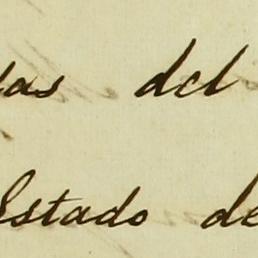 las del
Estado de